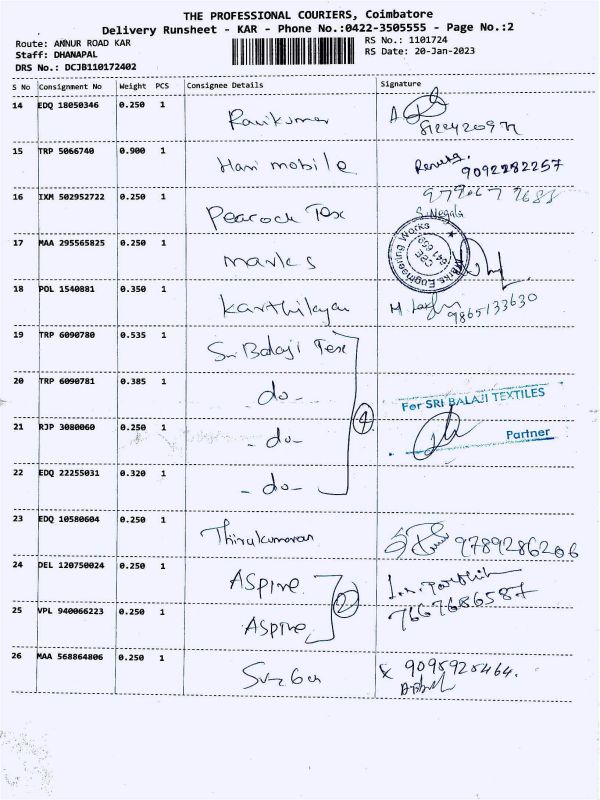 THE PROFESSIONAL COURIERS, Coimbatore
Delivery Runsheet - KAR - Phone No.:0422-3505555 - Page No.:2
Route: ANNUR ROAD KAR
RS No.: 1101724
Staff: DHANAPAL
RS Date: 20-Jan-2023
DRS No.: DCJB110172402
S No Consignment No Weight PCS Consignee Details Signature
14 EDQ 18050346 0.250 1 Ravikumar
15 TRP 5066740 0.900 1 Hari mobile
9092282257
16 IXM 502952722 0.250 1 Peacock Tex
17 MAA 295565825 0.250 1 marks
Engineering Works
CBE
641 659
18 POL 1540881 0.350 1 Karthikeyan
9865133630
19 TRP 6090780 0.535 1 Sri Balaji Tex
20 TRP 6090781 0.385 1 - do -
For SRI BALAJI TEXTILES
21 RJP 3080060 0.250 1 - do - 4
Partner
22 EDQ 22255031 0.320 1 - do -
23 EDQ 10580604 0.250 1 Thirukumaran
9789286206
24 DEL 120750024 0.250 1 ASpire 2
7667686587
25 VPL 940066223 0.250 1 Aspire
26 MAA 568864806 0.250 1